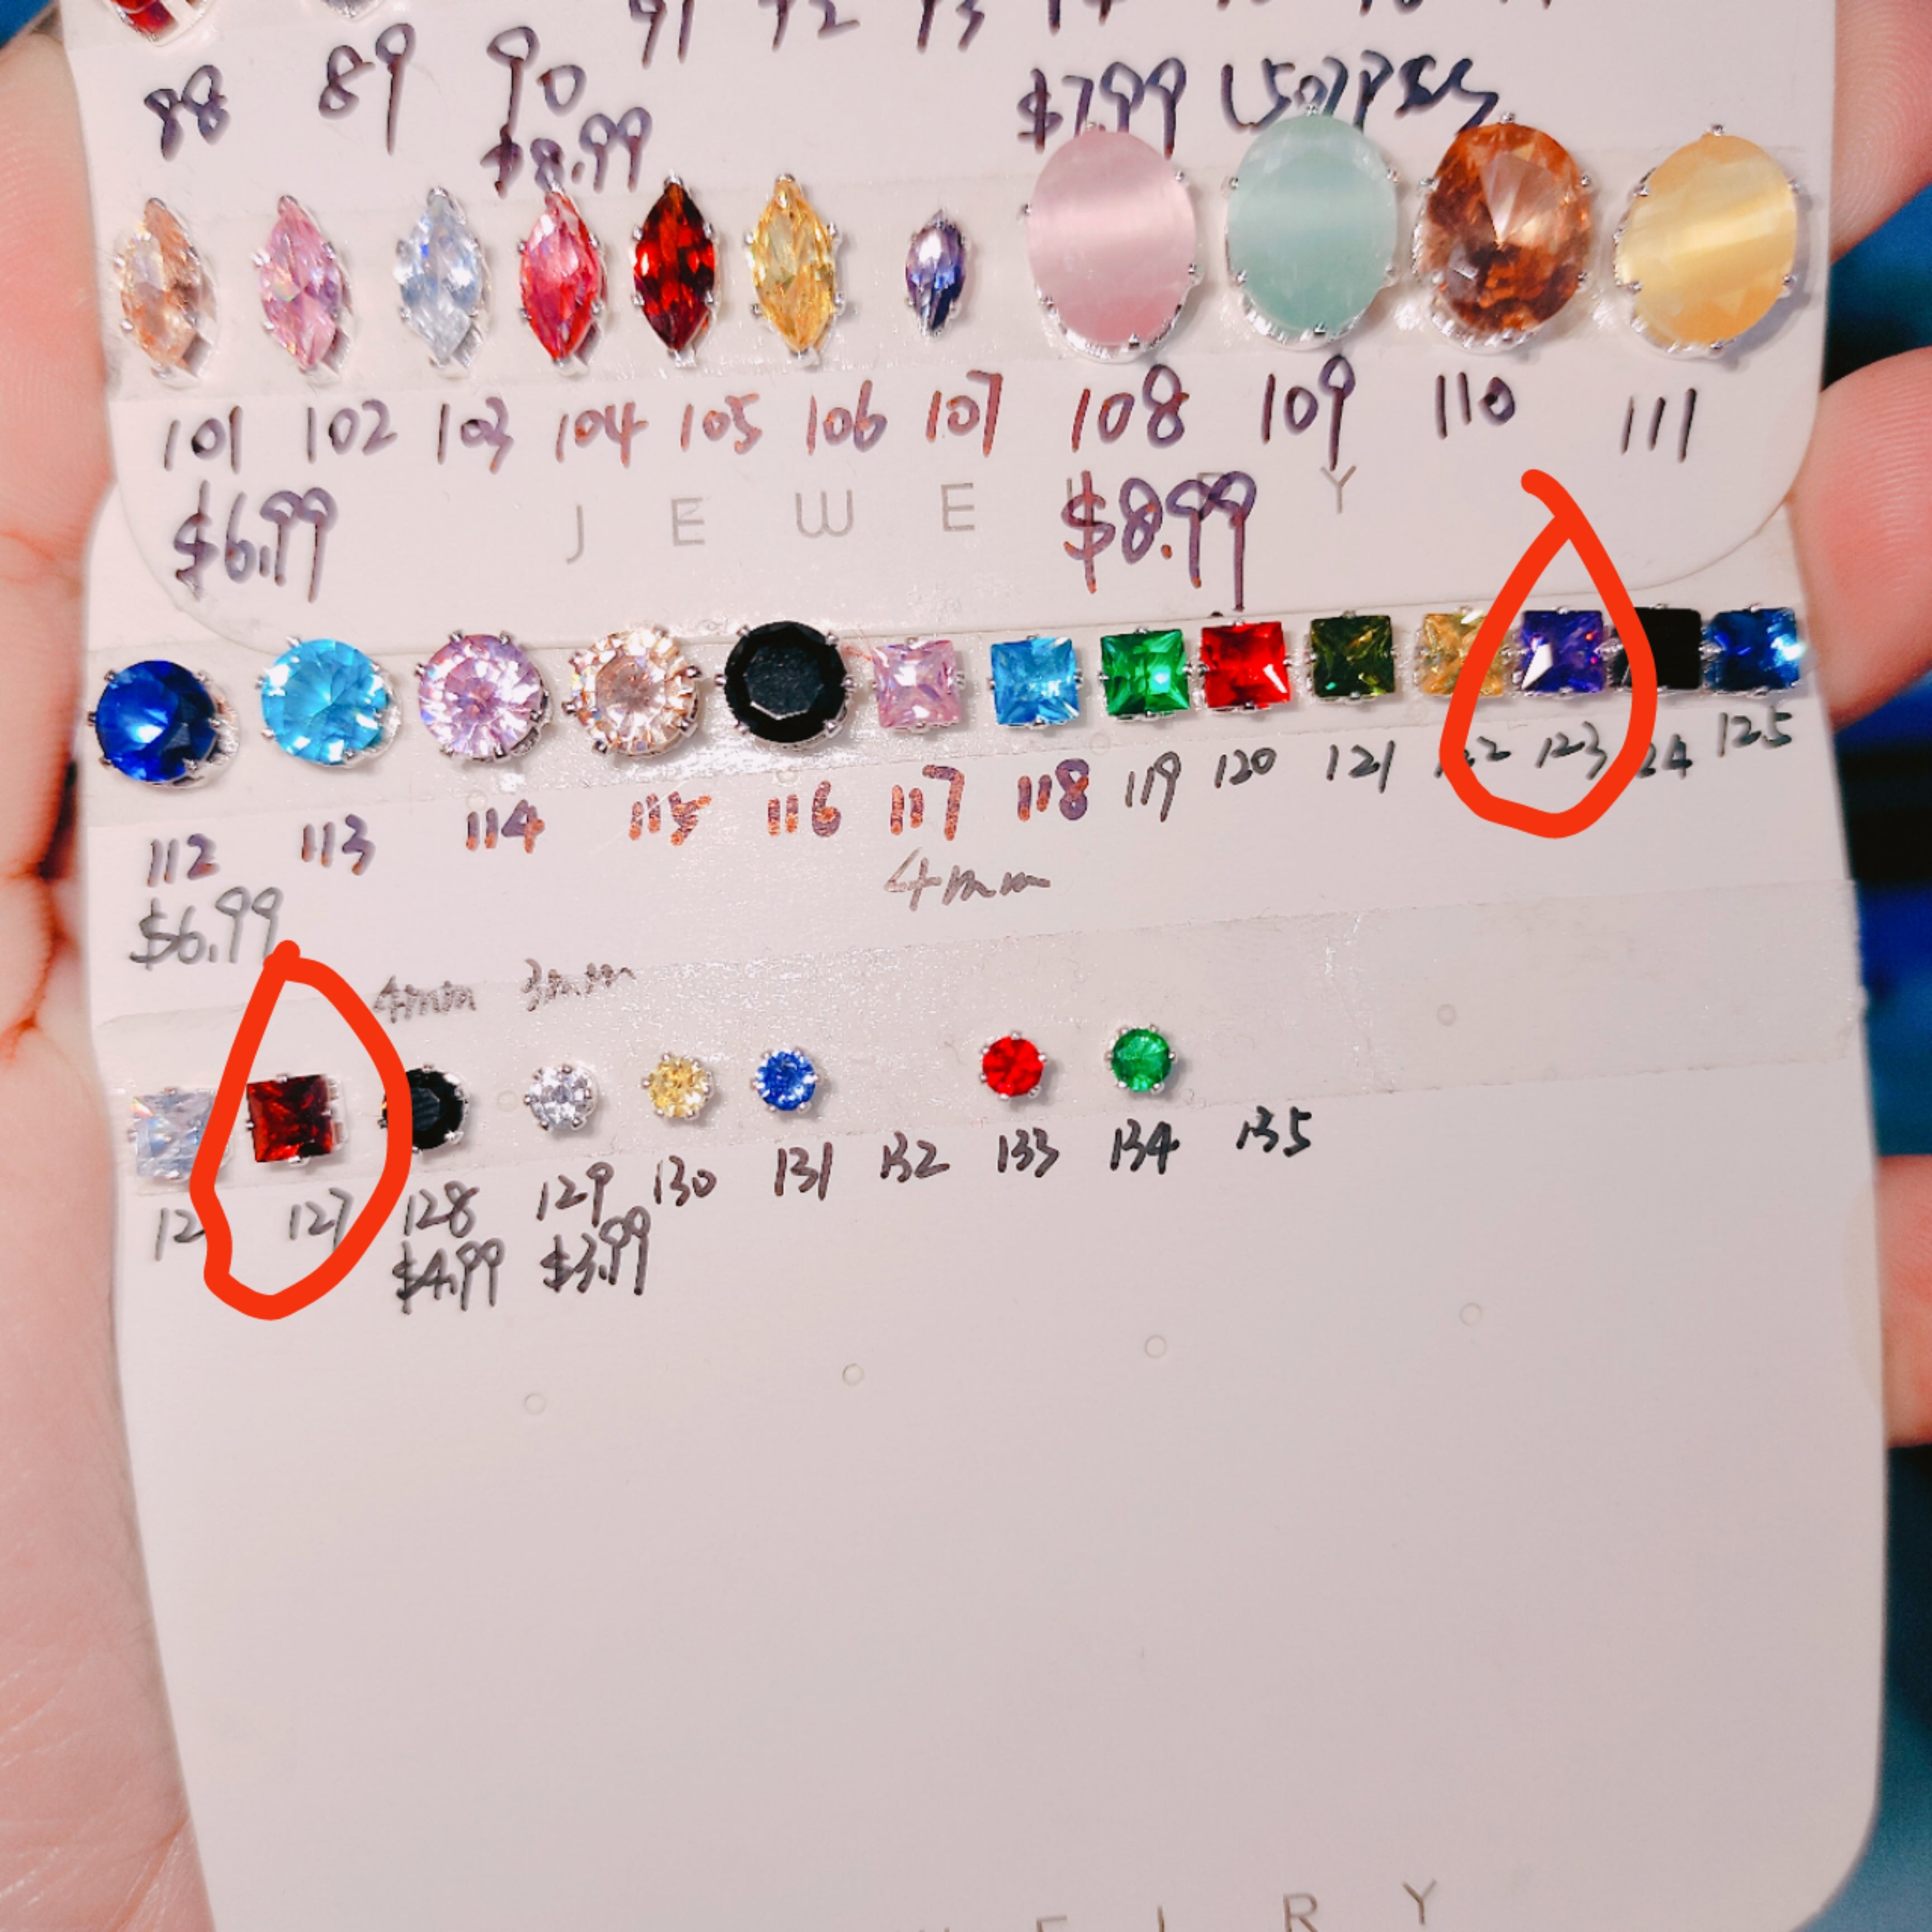 91 92 93 94
88 89 90
$8.99
$7.99 (50)PSCS
101 102 103 104 105 106 107 108 109 110 111
$6.99
$8.99
JEWELRY
112 113 114 115 116 117 118 119 120 121 123 125
4mm
$6.99
4mm 3mm
127 128 129 130 131 132 133 134 135
$4.99 $3.99
ELRY